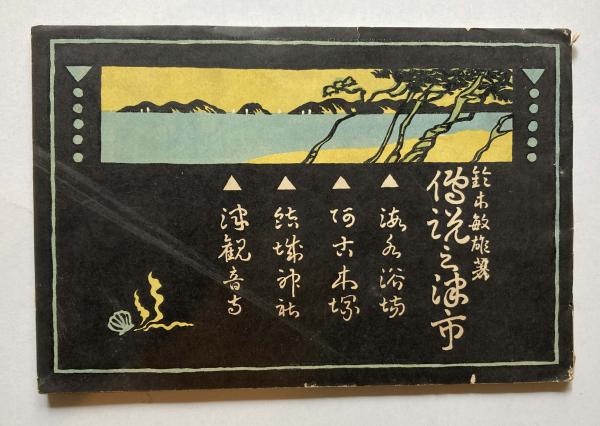 鈴木敏雄著
傳説之津市
▲海水浴場
▲阿古木塚
▲結城神社
▲津観音寺